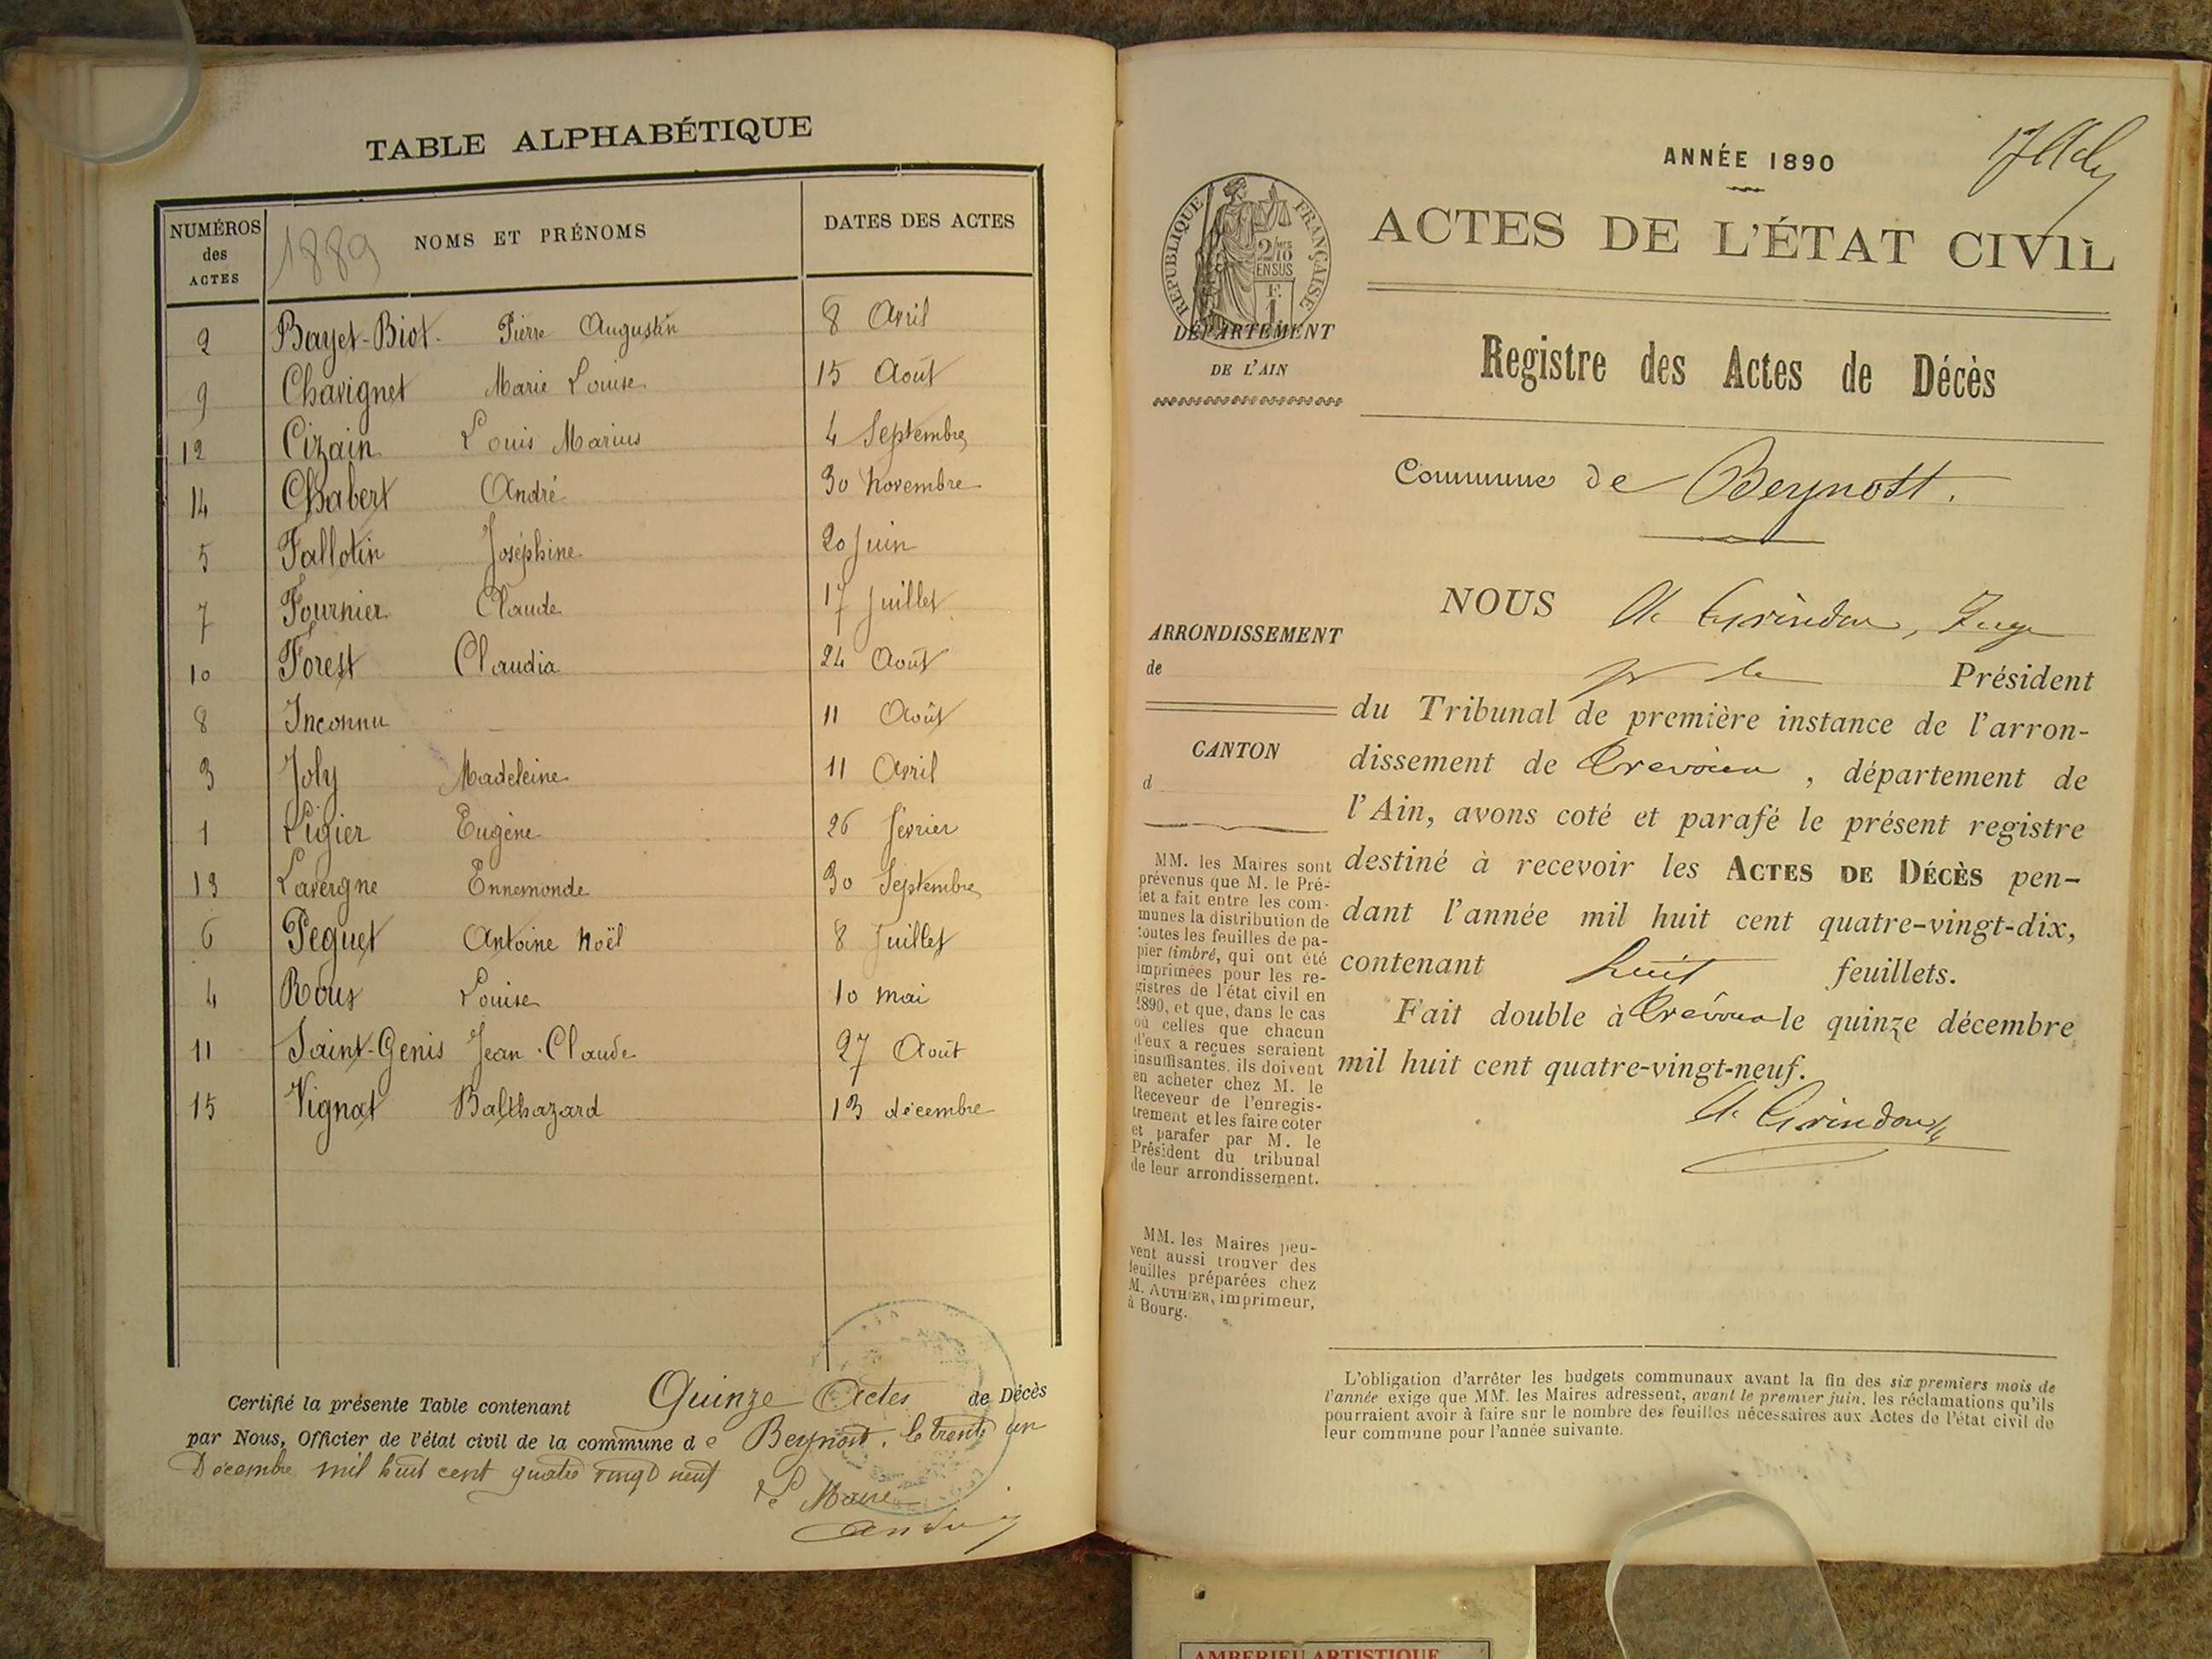 TABLE ALPHABÉTIQUE
NUMÉROS des ACTES
1889 NOMS ET PRÉNOMS
DATES DES ACTES
2 Bayet-Biot Pierre Augustin 8 Avril
9 Chavignet Marie Louise 15 Août
12 Cizain Louis Marius 4 Septembre
14 Chabert André 30 Novembre
5 Fallotin Joséphine 20 Juin
7 Fournier Claude 17 Juillet
10 Forest Claudia 24 Août
8 Inconnu 11 Août
3 Joly Madeleine 11 Avril
1 Ligier Eugène 26 février
13 Lavergne Ennemonde 30 Septembre
6 Peguet Antoine Noël 8 Juillet
4 Roux Louise 10 mai
11 Saint-Genis Jean-Claude 27 Août
15 Vignat Balthazard 13 décembre
Certifié la présente Table contenant Quinze Actes de Décès
par Nous, Officier de l'état civil de la commune de Beynost, le trente un
Décembre mil huit cent quatre vingt neuf
Le Maire
ANNÉE 1890
ACTES DE L'ÉTAT CIVIL
RÉPUBLIQUE FRANÇAISE
2/10
EN SUS
DÉPARTEMENT
DE L'AIN
Registre des Actes de Décès
Commune de Beynost.
ARRONDISSEMENT
de
CANTON
d
MM. les Maires sont
prévenus que M. le Pré-
fet a fait entre les com-
munes la distribution de
toutes les feuilles de pa-
pier timbré, qui ont été
imprimées pour les re-
gistres de l'état civil en
1890, et que, dans le cas
où celles que chacun
d'eux a reçues seraient
insuffisantes, ils doivent
en acheter chez M. le
Receveur de l'enregis-
trement et les faire coter
et parafer par M. le
Président du tribunal
de leur arrondissement.
MM. les Maires peu-
vent aussi trouver des
feuilles préparées chez
M. AUTHIER, imprimeur,
à Bourg.
NOUS A. Grindon, Juge
pr le Président
du Tribunal de première instance de l'arron-
dissement de Trévoux, département de
l'Ain, avons coté et parafé le présent registre
destiné à recevoir les ACTES DE DÉCÈS pen-
dant l'année mil huit cent quatre-vingt-dix,
contenant huit feuillets.
Fait double à Trévoux le quinze décembre
mil huit cent quatre-vingt-neuf.
A. Grindon
L'obligation d'arrêter les budgets communaux avant la fin des six premiers mois de
l'année exige que MM. les Maires adressent, avant le premier juin, les réclamations qu'ils
pourraient avoir à faire sur le nombre des feuilles nécessaires aux Actes de l'état civil de
leur commune pour l'année suivante.
AMBERIEU ARTISTIQUE